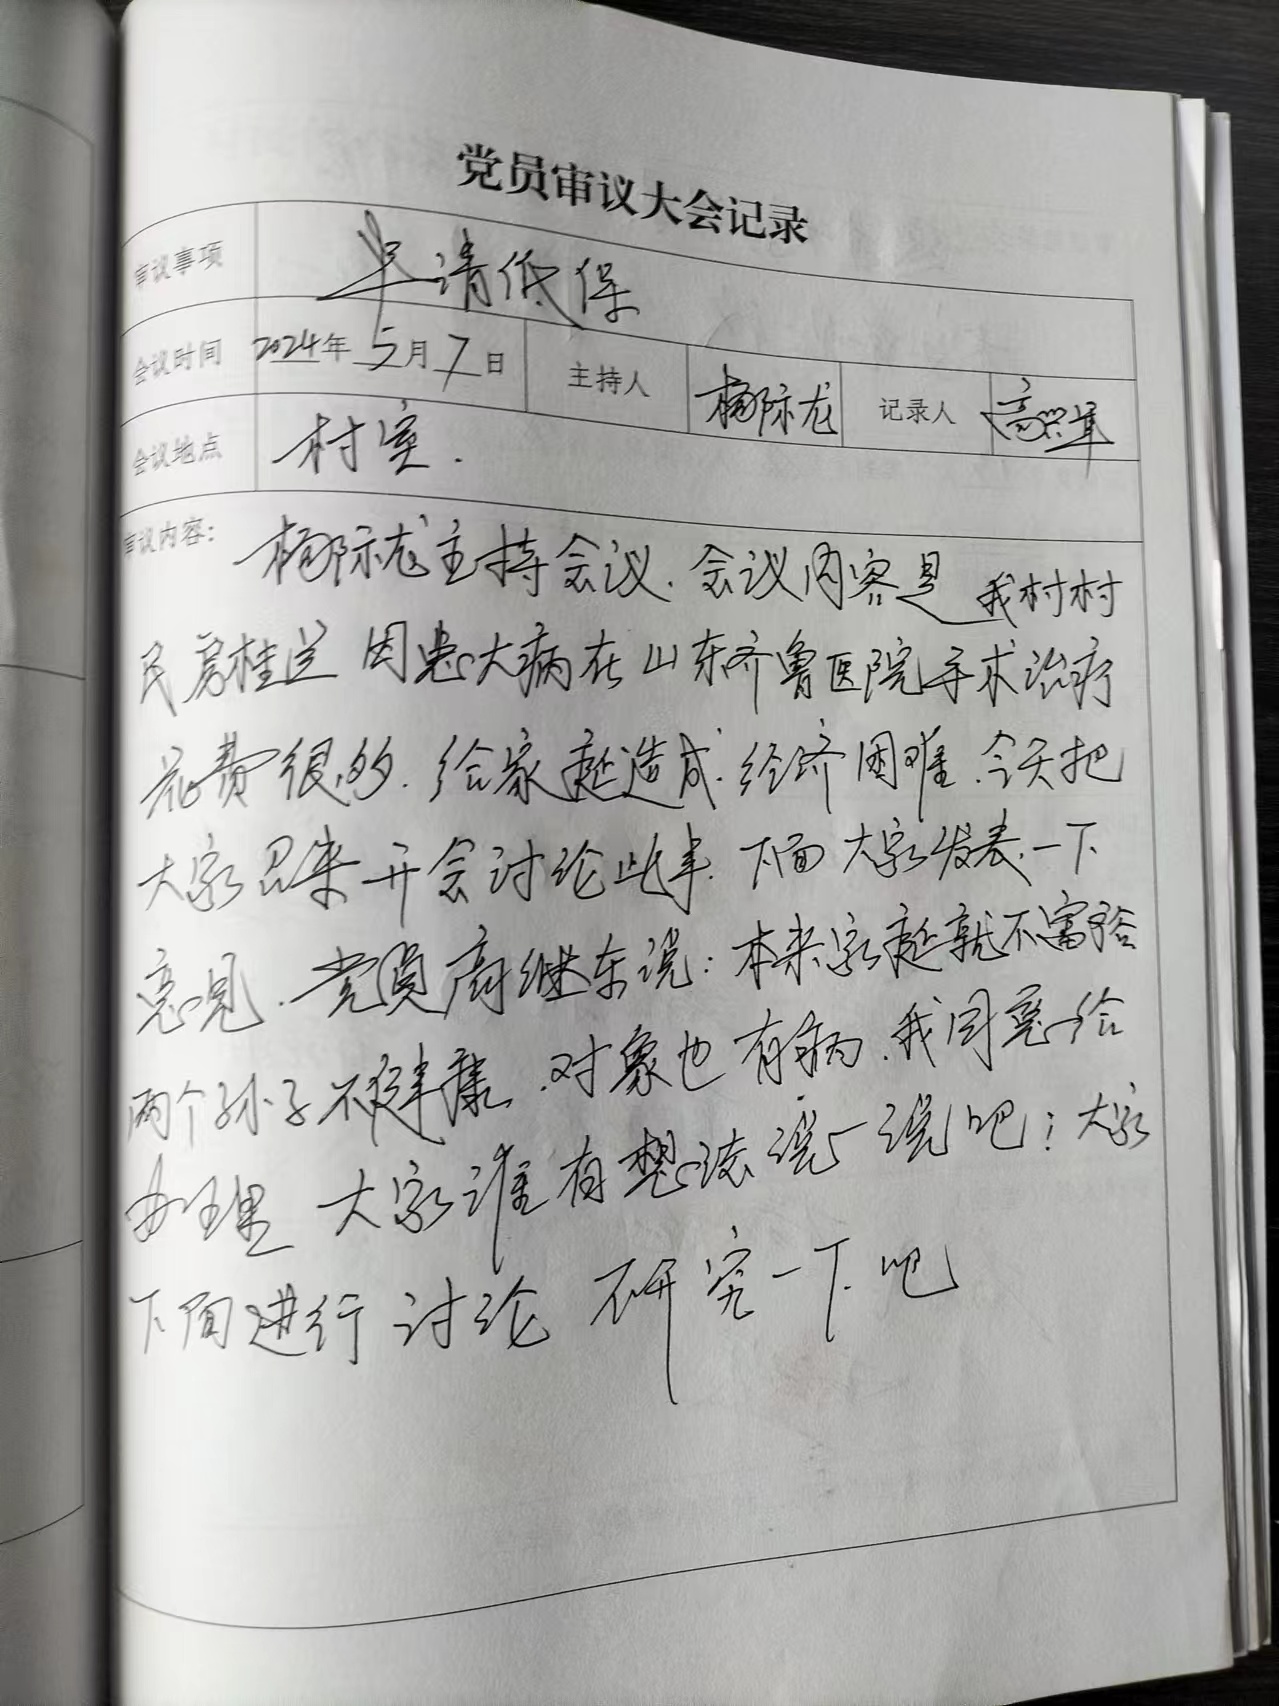 党员审议大会记录
审议事项 申请低保
会议时间 2024年5月7日 主持人 杨际龙 记录人 高兴军
会议地点 村室.
审议内容: 杨际龙主持会议.会议内容是我村村
民 桂兰因患大病在山东齐鲁医院手术治疗
花费很多.给家庭造成经济困难.今天把
大家召来开会讨论此事.下面大家发表一下
意见.党员 继东说:本来家庭就不富裕
两个孙子不健康.对象也有病.我同意给
办理 大家谁有想法说一说吧;大家
下面进行讨论 研究一下吧